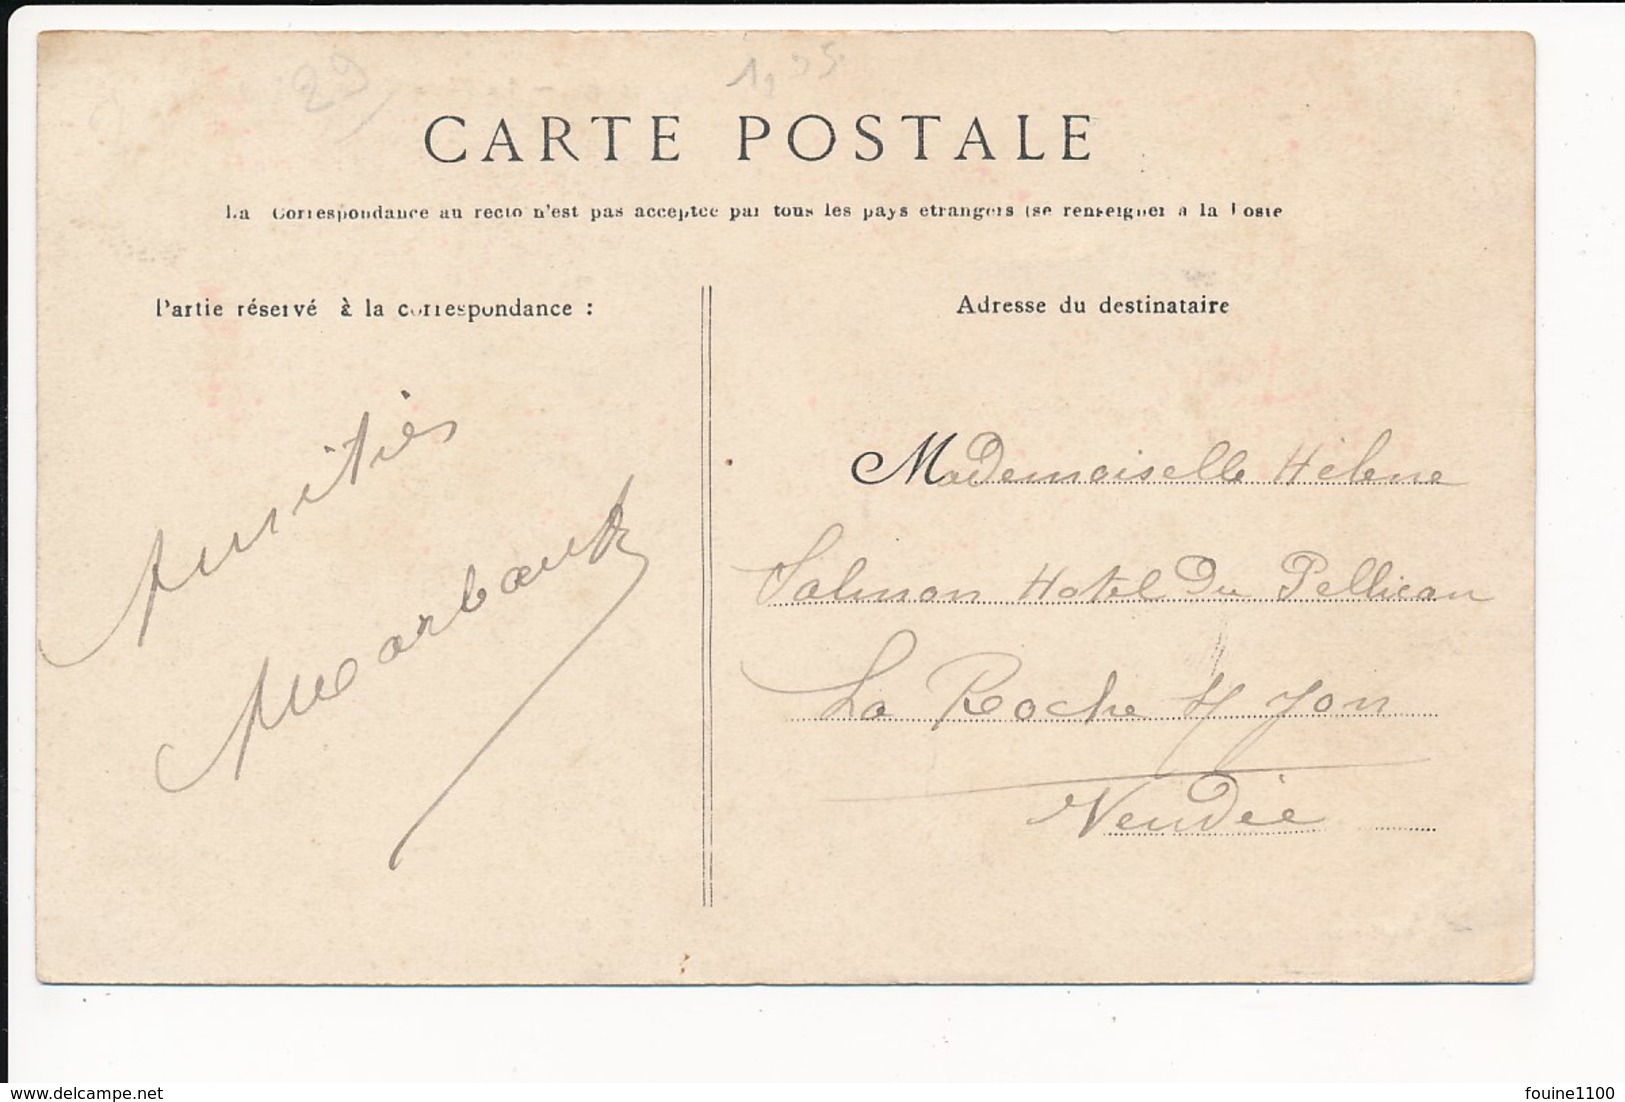 29
CARTE POSTALE
La Correspondance au recto n'est pas acceptée par tous les pays etrangers (se renseigner à la Poste
Partie réservé à la correspondance :
Adresse du destinataire
Amitiés
Mademoiselle Hélène
Salmon Hotel Du Pellican
La Roche s/ Yon
Vendée
delcampe.net
fouine1100